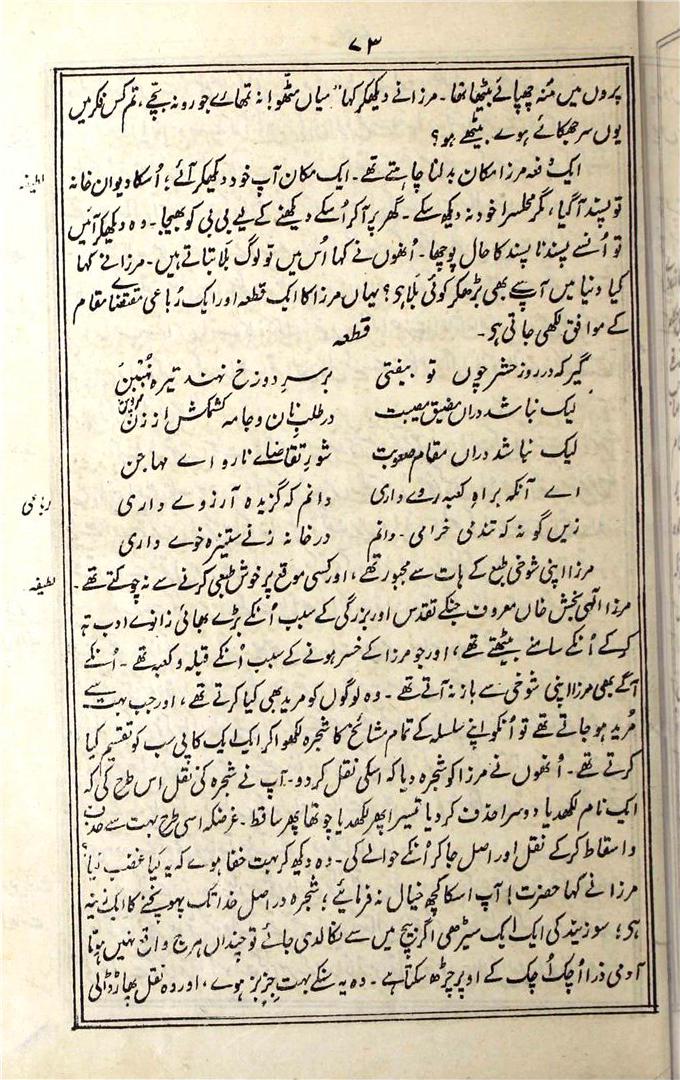 ۷۳
پروں میں مُنہ چھپائے بیٹھا تھا۔ مرزا نے دیکھکر کہا "میاں مٹھو! نہ تمھارے جورو نہ بچے، تم کس فکر میں
یوں سر جھکائے ہوے بیٹھے ہو؟
لطیفہ
ایک دفعہ مرزا مکان بدلنا چاہتے تھے۔ ایک مکان آپ خود دیکھکر آئے؛ اُسکا دیوان خانہ
تو پسند آگیا، مگر محلسرا خود نہ دیکھ سکے۔ گھر پر آکر اُسکے دیکھنے کے لیے بی بی کو بھیجا۔ وہ دیکھکر آئیں
تو اُنسے پسند ناپسند کا حال پوچھا۔ اُنھوں نے کہا اُس میں تو لوگ بَلا بتاتے ہیں۔ مرزا نے کہا
کیا دنیا میں آپسے بھی بڑھکر کوئی بَلا ہی؟ یہاں مرزا کا ایک قطعہ اور ایک رُباعی مقتضاے مقام
کے موافق لکھی جاتی ہی۔
قطعہ
گیر کہ در روز حشر چوں تو بیفتی بر سرِ دوزخ نہند تیرہ نُہُنبن
لیک نباشد دراں مضیقِ مصیبت در طلبِ نان و جامہ کشمکش از زن
لیک نباشد دراں مقام صعوبت شورِ تقاضاے ناروا ے مہاجن
رباعی
اے آنکہ براہِ کعبہ روے داری دانم کہ گزیدہ آرزوے داری
زیں گونہ کہ تند می خرامی۔ دانم در خانہ زنے ستیزہ خوے داری
لطیفہ
مرزا اپنی شوخی طبع کے ہات سے مجبور تھے، اور کسی موقع پر خوش طبعی کرنے سے نہ چوکتے تھے۔
مرزا الٰہی بخش خاں معروف جنکے تقدّس اور بزرگی کے سبب اُنکے بڑے بھائی زانوے ادب تہ
کرکے اُنکے سامنے بیٹھتے تھے، اور جو مرزا کے خسر ہونے کے سبب اُنکے قبلہ و کعبہ تھے۔ اُنکے
آگے بھی مرزا اپنی شوخی سے باز نہ آتے تھے۔ وہ لوگوں کو مرید بھی کیا کرتے تھے، اور جب بہت سے
مُرید ہو جاتے تھے تو اُنکو اپنے سلسلہ کے تمام مشائخ کا شجرہ لکھوا کر ایک ایک کاپی سب کو تقسیم کیا
کرتے تھے۔ اُنھوں نے مرزا کو شجرہ دیا کہ اسکی نقل کردو۔ آپ نے شجرہ کی نقل اس طرح کی کہ
ایک نام لکھدیا دوسرا حذف کردیا تیسرا پھر لکھدیا چوتھا پھر ساقط۔ غرضکہ اسی طرح بہت سے حذف
و اسقاط کرکے نقل اور اصل جاکر اُنکے حوالے کی۔ وہ دیکھ کر بہت خفا ہوے کہ یہ کیا غضب کیا؟
مرزا نے کہا حضرت! آپ اسکا کچھ خیال نہ فرمائیے؛ شجرہ دراصل خدا تک پہونچنے کا ایک زینہ
ہی؛ سو زینہ کی ایک ایک سیڑھی اگر بیچ میں سے نکالدی جائے تو چنداں ہرج واقع نہیں ہوتا
آدمی ذرا اُچک اُچک کے اوپر چڑھ سکتا ہے۔ وہ یہ سنکے بہت جزبز ہوے، اور وہ نقل پھاڑ ڈالی